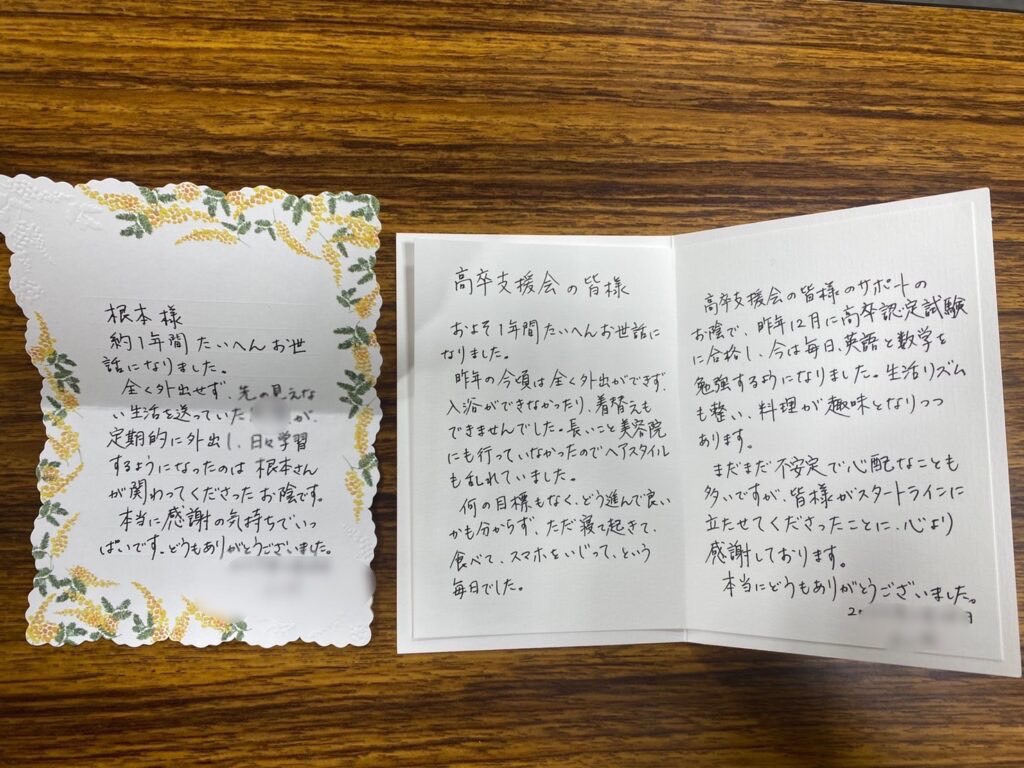 根本様
約1年間たいへんお世
話になりました。
全く外出せず、先の見えな
い生活を送っていた が、
定期的に外出し、日々学習
するようになったのは根本さん
が関わってくださったお陰です。
本当に感謝の気持ちでいっ
ぱいです。どうもありがとうございました。
高卒支援会の皆様
およそ1年間たいへんお世話に
なりました。
昨年の今頃は全く外出ができず、
入浴ができなかったり、着替えも
できませんでした。長いこと美容院
にも行っていなかったのでヘアスタイル
も乱れていました。
何の目標もなく、どう進んで良い
かも分からず、ただ寝て起きて、
食べて、スマホをいじって、という
毎日でした。
高卒支援会の皆様のサポートの
お陰で、昨年12月に高卒認定試験
に合格し、今は毎日、英語と数学を
勉強するようになりました。生活リズム
も整い、料理が趣味となりつつ
あります。
まだまだ不安定で心配なことも
多いですが、皆様がスタートラインに
立たせてくださったことに、心より
感謝しております。
本当にどうもありがとうございました。